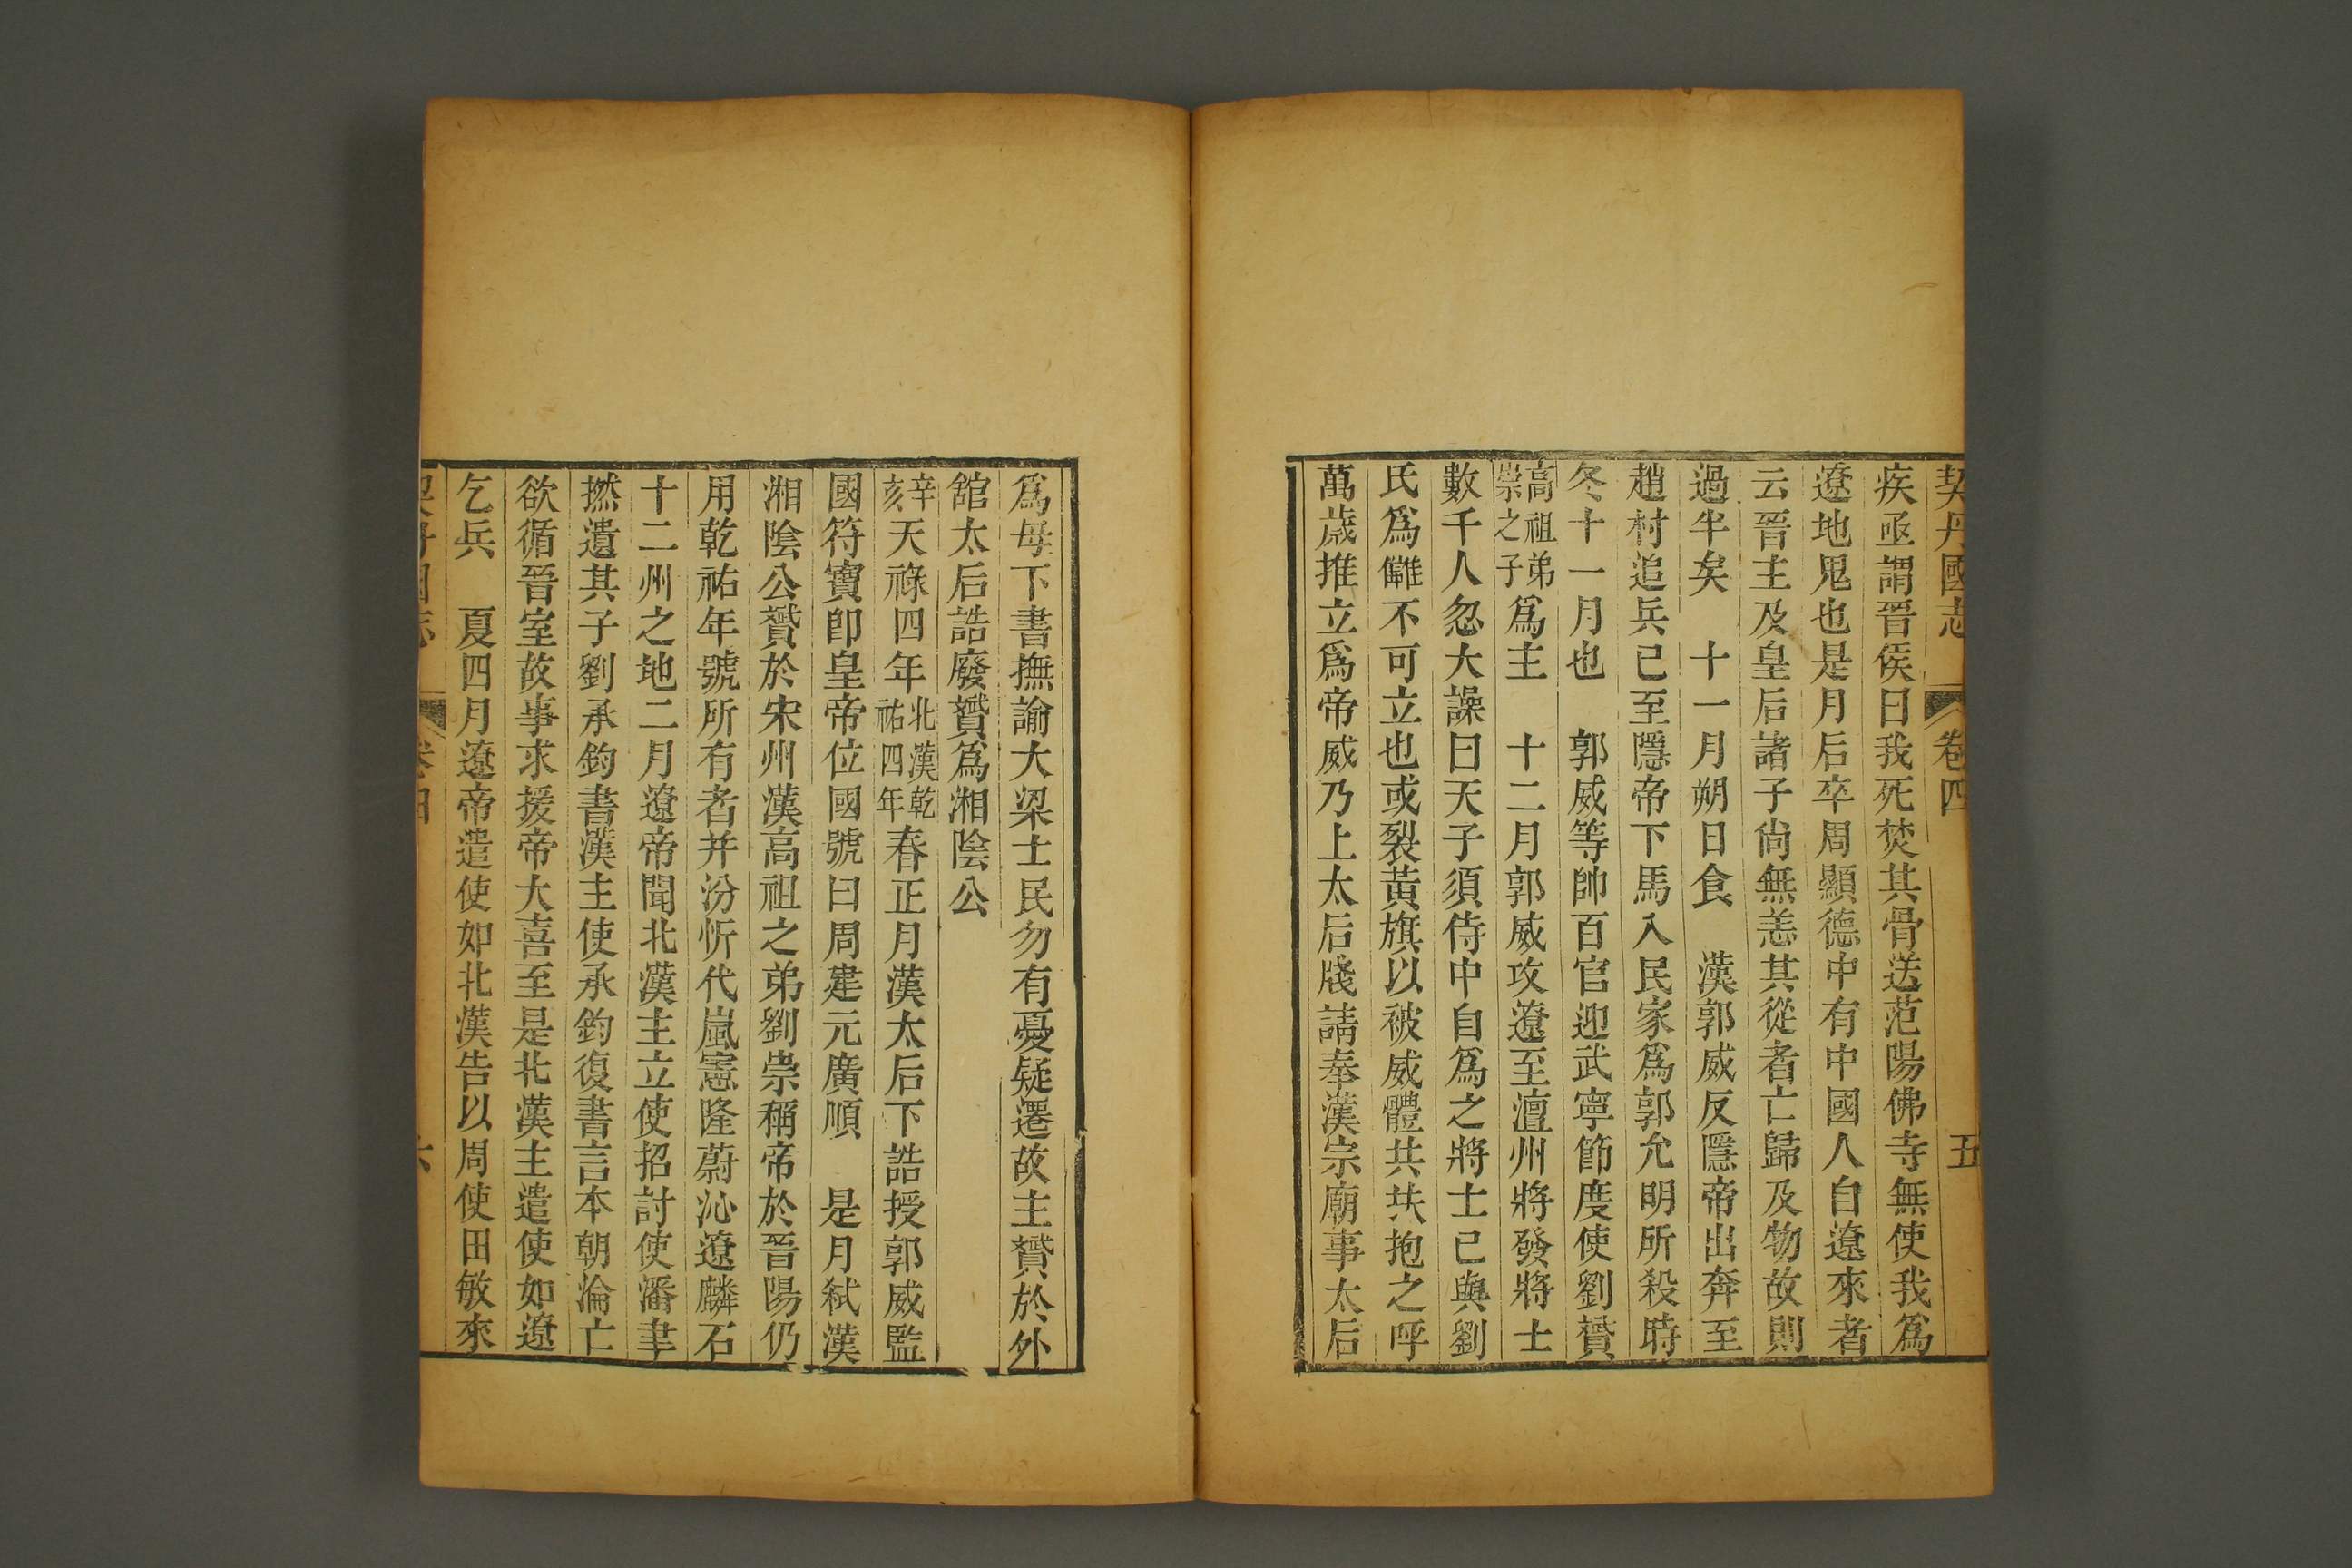 契丹國志 卷四 五
疾亟謂晉侯曰我死焚其骨送范陽佛寺無使我爲
遼地鬼也是月后卒周顯德中有中國人自遼來者
云晉主及皇后諸子尙無恙其從者亡歸及物故則
過半矣 十一月朔日食 漢郭威反隱帝出奔至
趙村追兵已至隱帝下馬入民家爲郭允明所殺時
冬十一月也 郭威等帥百官迎武寧節度使劉贇
高祖弟崇之子爲主 十二月郭威攻遼至澶州將發將士
數千人忽大譟曰天子須侍中自爲之將士已與劉
氏爲讎不可立也或裂黃旗以被威體共扶抱之呼
萬歲推立爲帝威乃上太后牋請奉漢宗廟事太后
爲母下書撫諭大梁士民勿有憂疑遷故主贇於外
館太后誥廢贇爲湘陰公
辛亥天祿四年北漢乾祐四年春正月漢太后下誥授郭威監
國符寶卽皇帝位國號曰周建元廣順 是月弑漢
湘陰公贇於宋州漢高祖之弟劉崇稱帝於晉陽仍
用乾祐年號所有者并汾忻代嵐憲隆蔚沁遼麟石
十二州之地二月遼帝聞北漢主立使招討使潘聿
撚遺其子劉承鈞書漢主使承鈞復書言本朝淪亡
欲循晉室故事求援帝大喜至是北漢主遣使如遼
乞兵 夏四月遼帝遣使如北漢告以周使田敏來
契丹國志 卷四 六